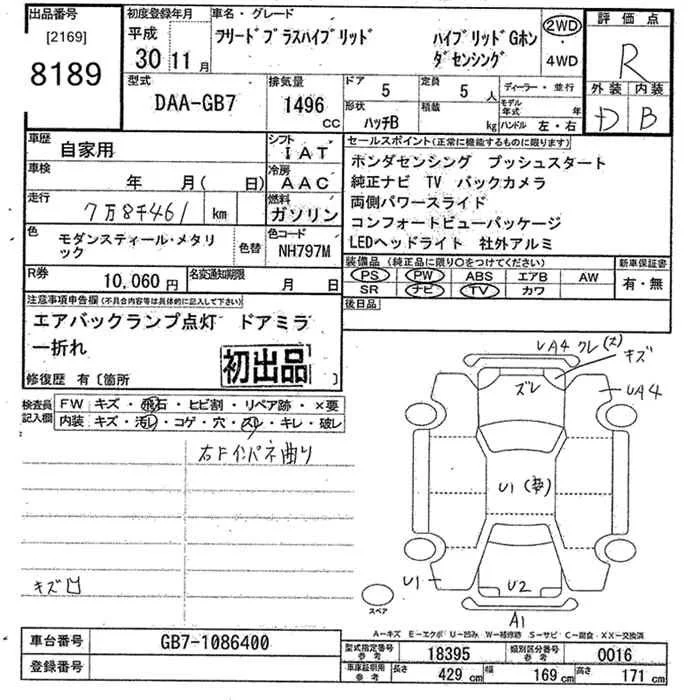 出品番号
[2169]
8189
初度登録年月
平成
30 11月
車名・グレード
フリードプラスハイブリッド ハイブリッドGホン
ダセンシング
2WD
・
4WD
評価点
R
外装 内装
D B
型式
DAA-GB7
排気量
1496
CC
ドア
5
形状
ハッチB
定員
5 人
積載
kg
ディーラー・並行
モデル
年式 年
ハンドル 左・右
車歴
自家用
シフト
IAT
車検
年 月( 日)
冷房
AAC
走行
7万8千461 km
燃料
ガソリン
色
モダンスティール・メタリ
ック
色替
色コード
NH797M
R券
10,060円
名変通知期限
月 日
セールスポイント(正常に機能するものに限ります)
ホンダセンシング プッシュスタート
純正ナビ TV バックカメラ
両側パワースライド
コンフォートビューパッケージ
LEDヘッドライト 社外アルミ
装備品(純正品に限り○をつけてください)
PS PW ABS エアB AW
SR ナビ TV カワ
新車保証書
有・無
後日品
注意事項申告欄(不具合内容等は具体的に記入して下さい)
エアバックランプ点灯 ドアミラ
ー折れ
初出品
修復歴 有〔箇所 〕
検査員
記入欄
FW キズ・飛石・ヒビ割・リペア跡・×要
内装 キズ・汚レ・コゲ・穴・スレ・キレ・破レ
右Fインパネ曲り
キズ凹
UA4 クレ(ズ)
キズ
ズレ
UA4
U1
U1
U2
A1
スペア
A-キズ E-エクボ U-凹み W-補修跡 S-サビ C-腐食・XX-交換済
車台番号
GB7-1086400
登録番号
型式指定番号
参考
18395
類別区分番号
参考
0016
車庫証明用
参考
長さ 429 cm 幅 169 cm 高さ 171 cm